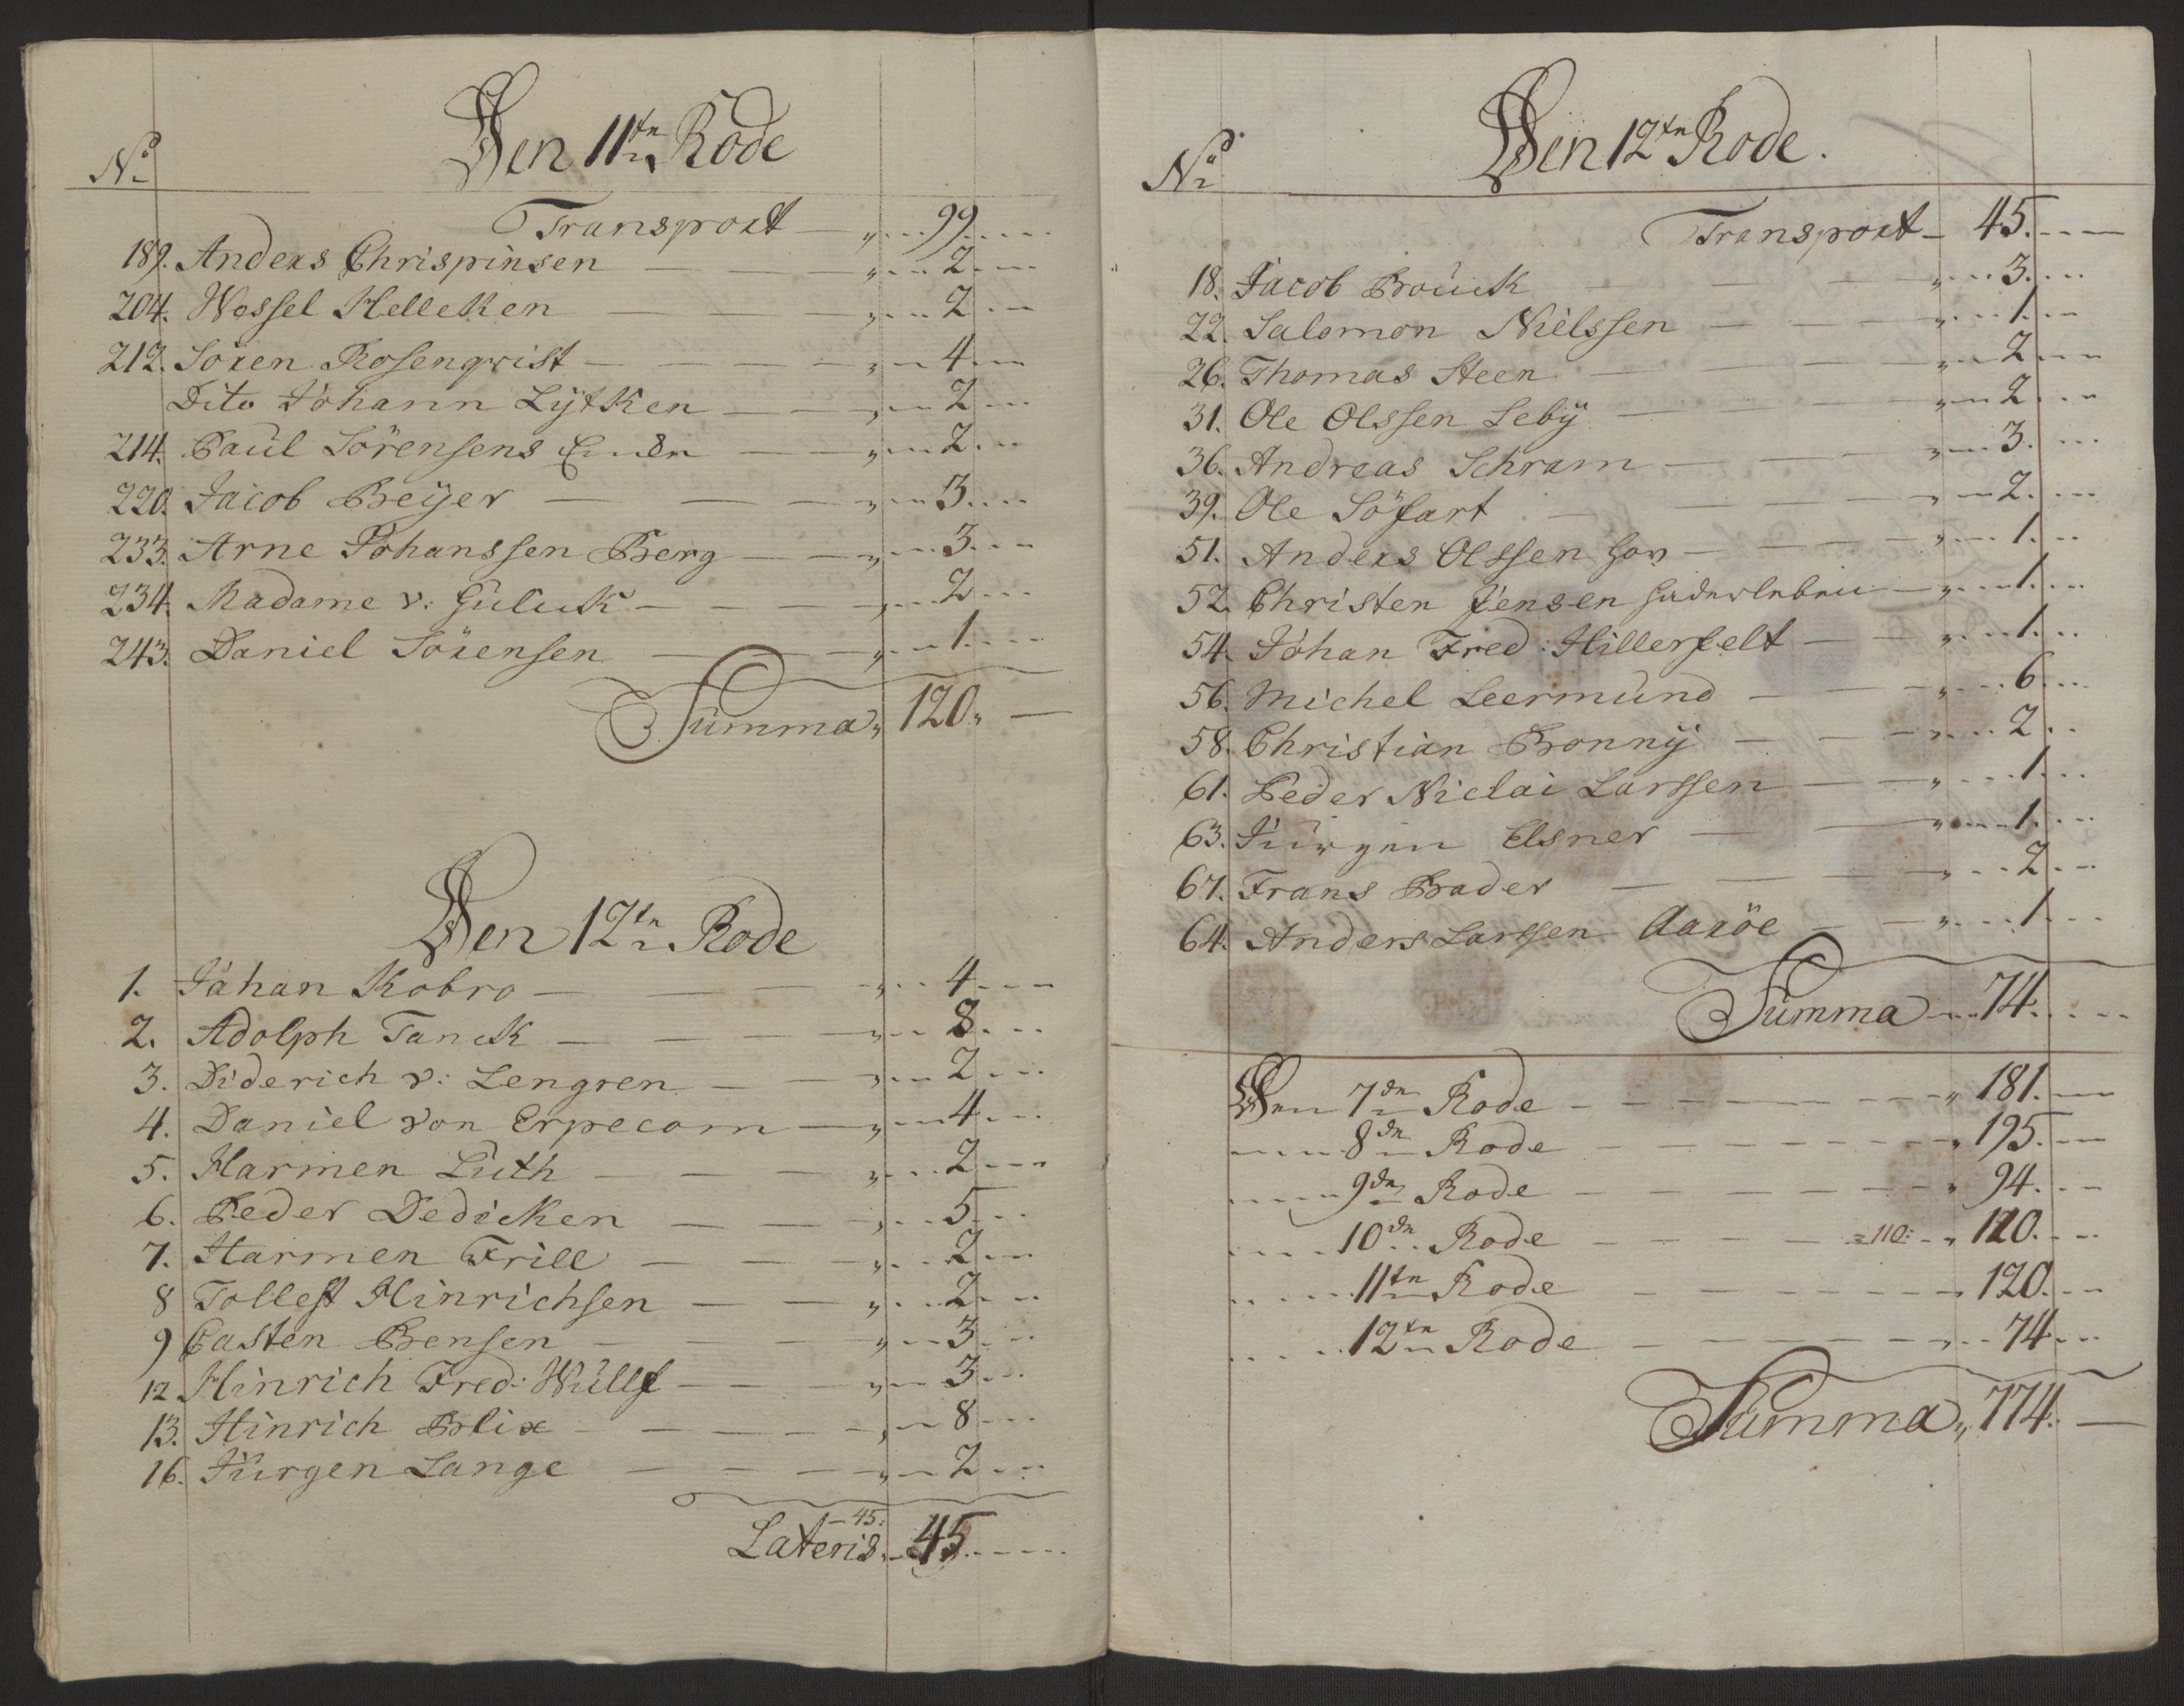 Den 11tn Rode
No
Transport 99
189. Anders Chrispinsen 2
204. Wessel Helleken 2
212. Sören Rosenqvist 4
Dito Johann Lytken 2
214. Paul Sörensens 2
220. Jacob Beyer 3
233. Arne Johanssen Berg 3
234. Madame v: Güluk 2
243. Daniel Sörensen 1
Summa 120
Den 12tn Rode
1. Jahan Kobro 4
2. Adolph Tanck 8
3. Diderich v: Lengren 2
4. Daniel von Erpecom 4
5. Harmen Luth 2
6. Peder Dedicken 5
7. Harmen Frill 2
8 Tollef Hinrichsen 2
9 Casten Bensen 3
12 Hinrich Fred: Wüllf 3
13. Hinrich Blix 8
16. Jürgen Lange 2
45.
Lateris 45
Den 12tn Rode.
No
Transport 45.
18. Jacob Brouck 3.
22. Salomon Nielssen 1.
26. Thomas Steen 2
31. Ole Olssen Seby 2
36. Andreas Schram 3.
39. Ole Söfart 2.
51. Anders Olssen Hov 1.
52. Christen Jensen Haderleben 1.
54. Johan Fred: Hillerfelt 1.
56. Michel Leermund 6
58. Christian Bonny 2
61. Peder Niclai Larssen 1.
63. Jürgen Elsner 1.
67. Frans Bader 2
64. Anders Larssen Aaröe 1
Summa 74.
Den 7dn Rode 181.
8dn Rode 195.
9dn Rode 94.
10dn Rode =110: 110.
11tn Rode 120.
12tn Rode 74
Summa 774.